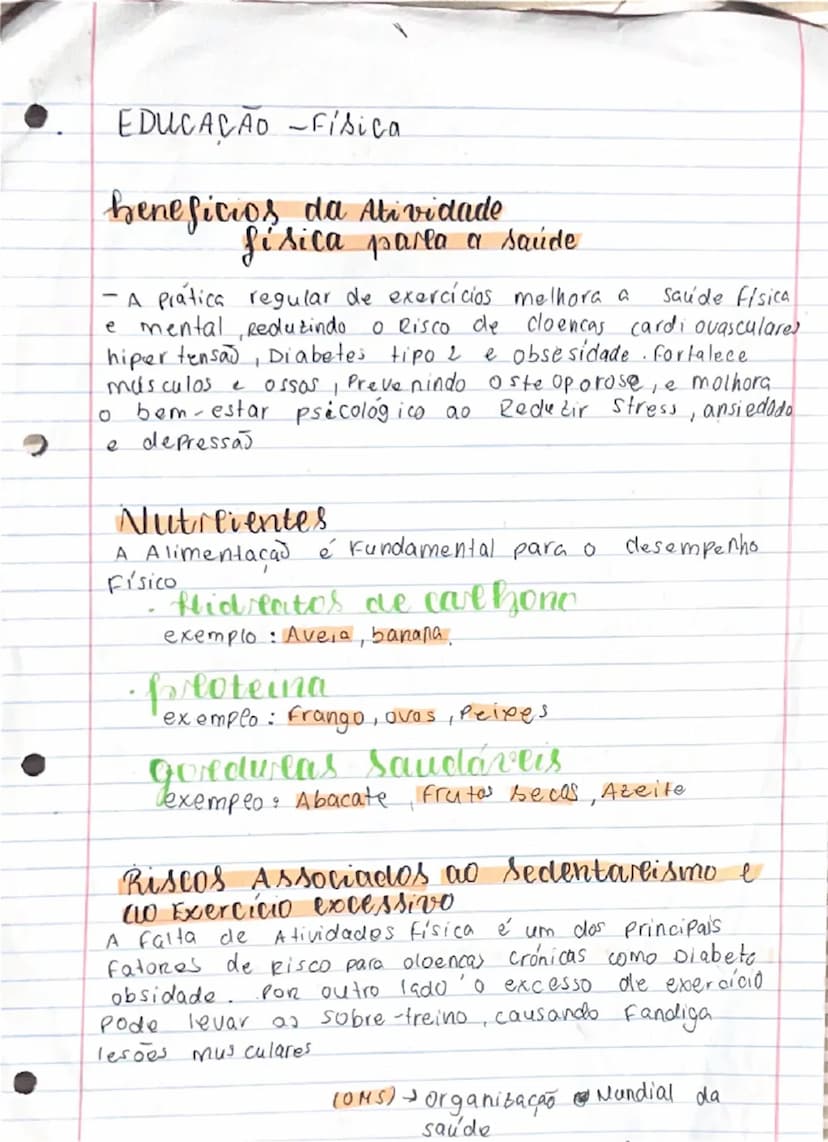 EDUCAÇÃO - Física
benefícios da Atividade
física para a saúde
- A prática regular de exercícios melhora a saúde física
e mental, Reduzindo o Risco de doenças cardiovasculares
hipertensão, Diabetes tipo 2 e obsesidade. Fortalece
músculos e ossos, Prevenindo osteoporose, e molhora
o bem-estar psicológico ao Reduzir Stress, ansiedade
e depressão
Nutrientes
A Alimentação é Fundamental para o desempenho
Físico
. Hidratos de carbono
exemplo: Aveia, banana.
. proteína
exemplo: Frango, ovos, Peixes
gorduras saudáveis
exemplo: Abacate, Frutos secos, Azeite
Riscos Associados ao Sedentarismo e
ao Exercício excessivo
A Falta de Atividades Física é um dos Principais
Fatores de Risco para doenças crónicas como Diabete
obsidade. Por outro lado o excesso de exercício
Pode levar ao sobre-treino, causando Fandiga
lesões musculares
(OMS) → Organização Mundial da
saúde